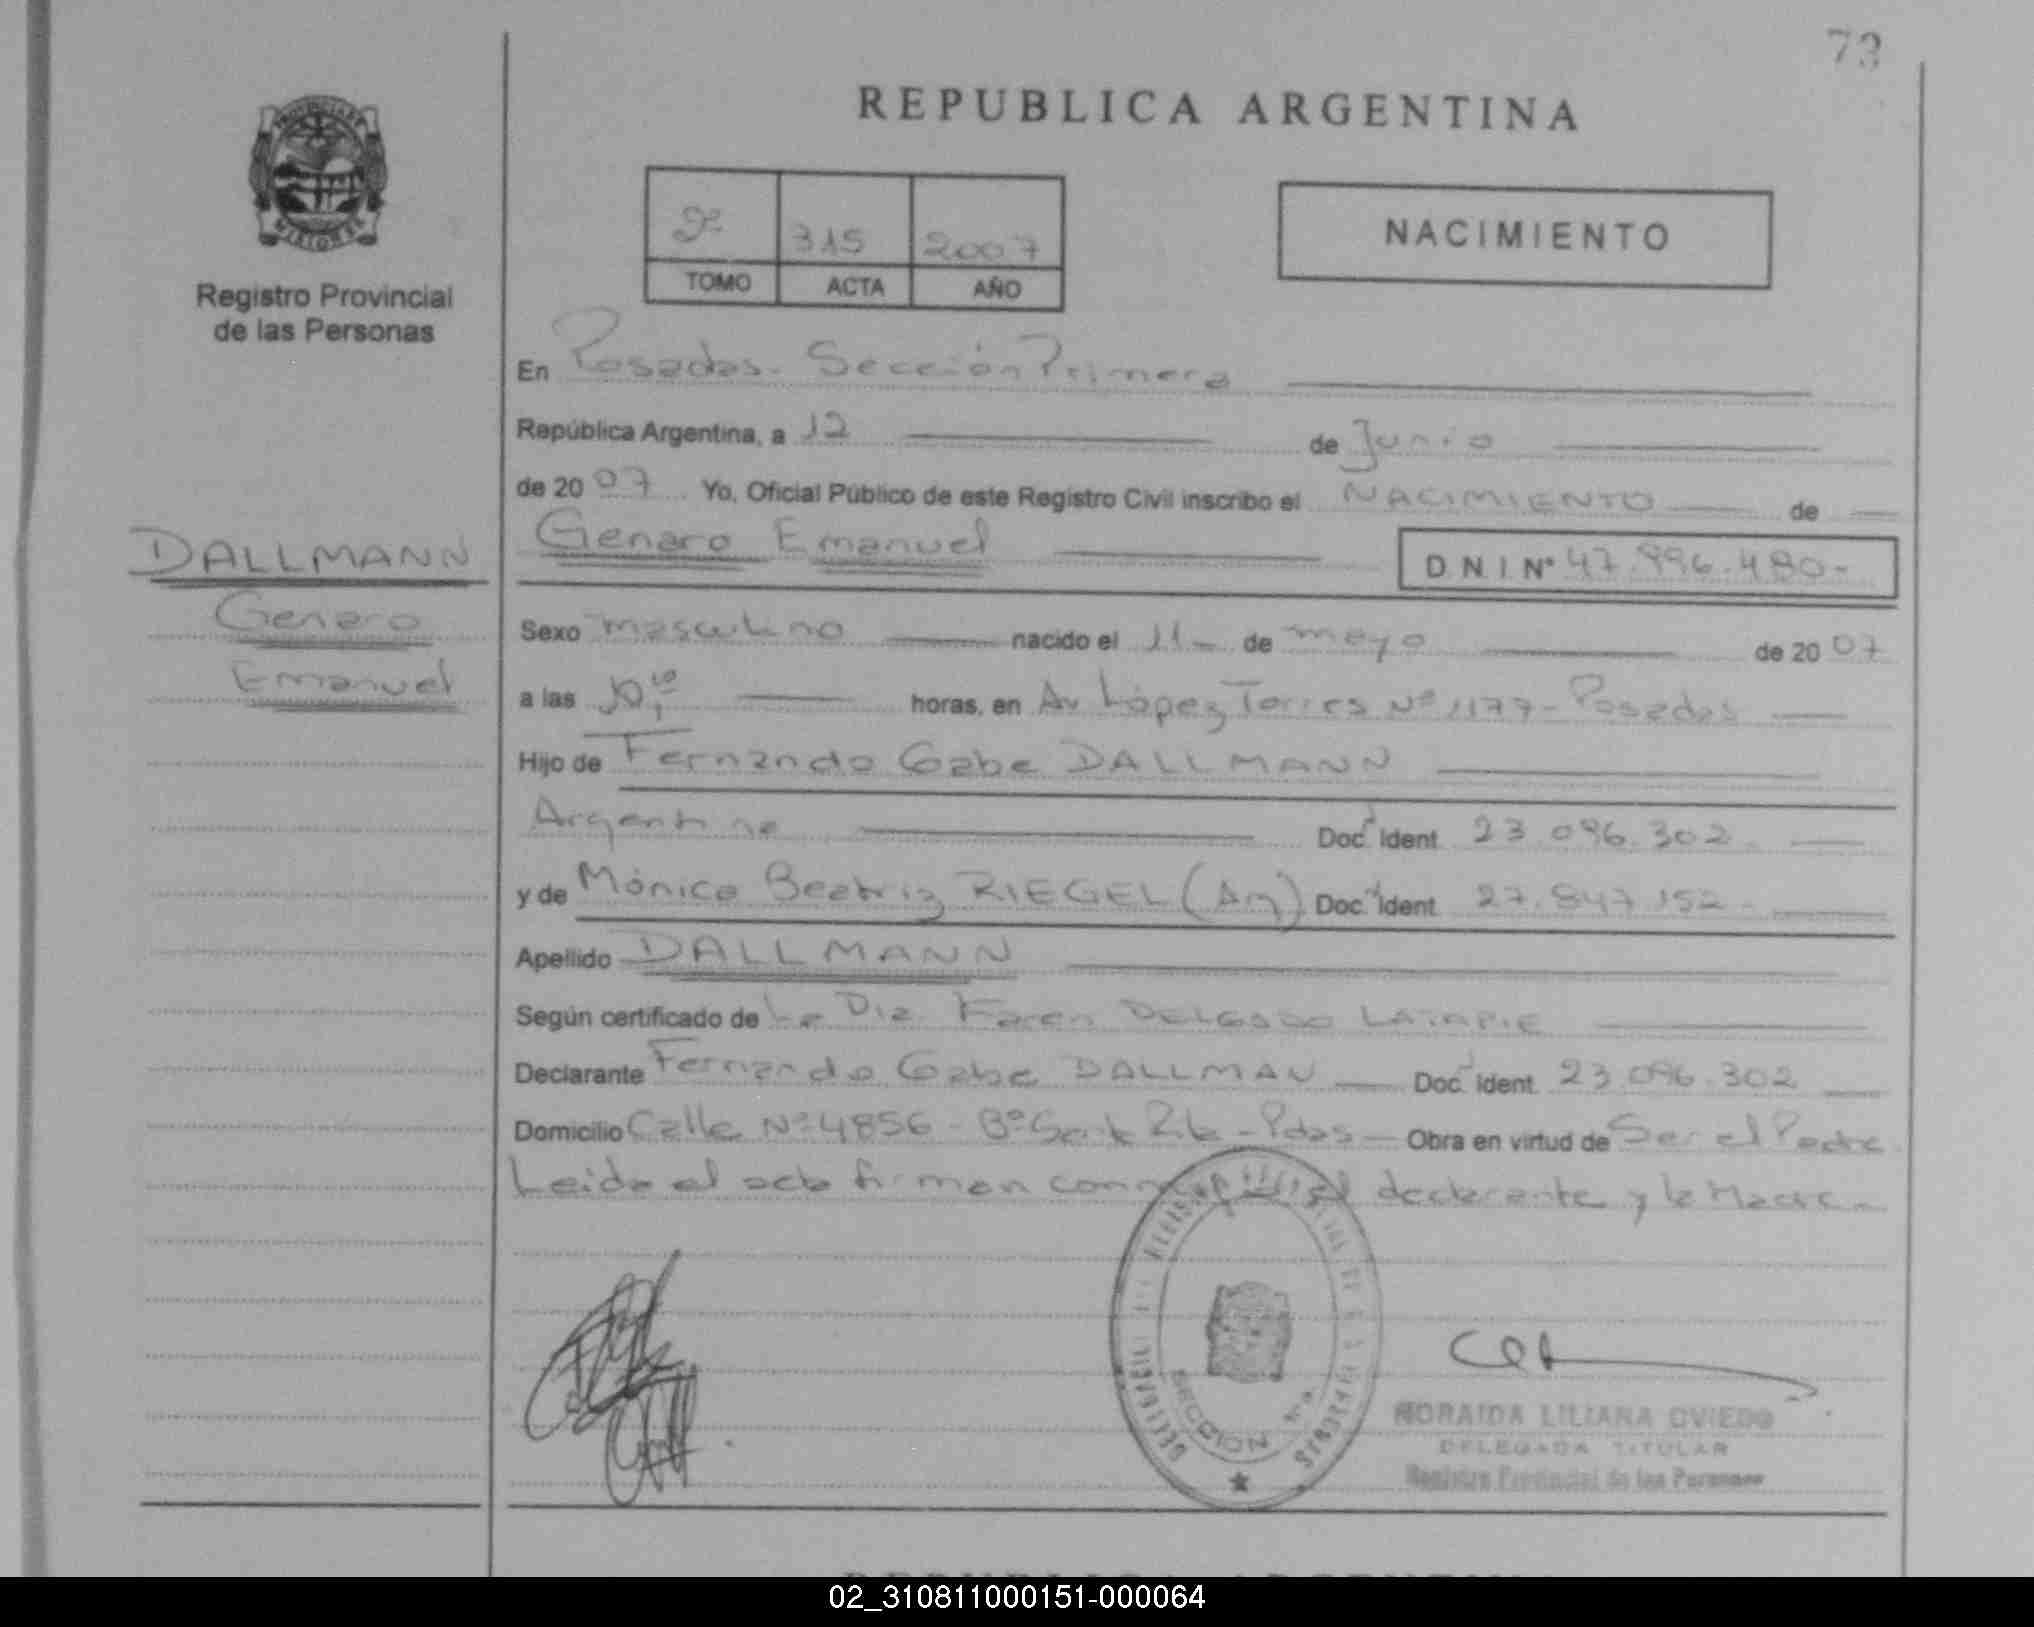 73
PROVINCIA DE
MISIONES
Registro Provincial
de las Personas
REPUBLICA ARGENTINA
2º 315 2007
TOMO ACTA AÑO
NACIMIENTO
En Posadas - Sección Primera
República Argentina, a 12 de Junio
de 2007 Yo, Oficial Público de este Registro Civil inscribo el NACIMIENTO de
DALLMANN
Genaro
Emanuel
Genaro Emanuel
D.N.I Nº 47.996.480-
Sexo masculino nacido el 11 - de mayo de 2007
a las horas, en Av López Torres Nº 1177 - Posadas
Hijo de Fernando Gabe DALLMANN
Argentina Doc. Ident. 23.096.302
y de Mónica Beatriz RIEGEL (Arg) Doc. Ident. 27.847.152-
Apellido DALLMANN
Según certificado de La Dra. Karen DELGADO LATAPIE
Declarante Fernando Gabe DALLMAN Doc. Ident. 23.096.302
Domicilio Calle Nº 4856 - Bº Santa Rita - Pdas - Obra en virtud de Ser el Padre
Leida el acta firman conmigo el declarante y la Madre -
SECCION 1ra
NORAIDA LILIANA OVIEDO
DELEGADA TITULAR
Registro Provincial de las Personas
02_310811000151-000064